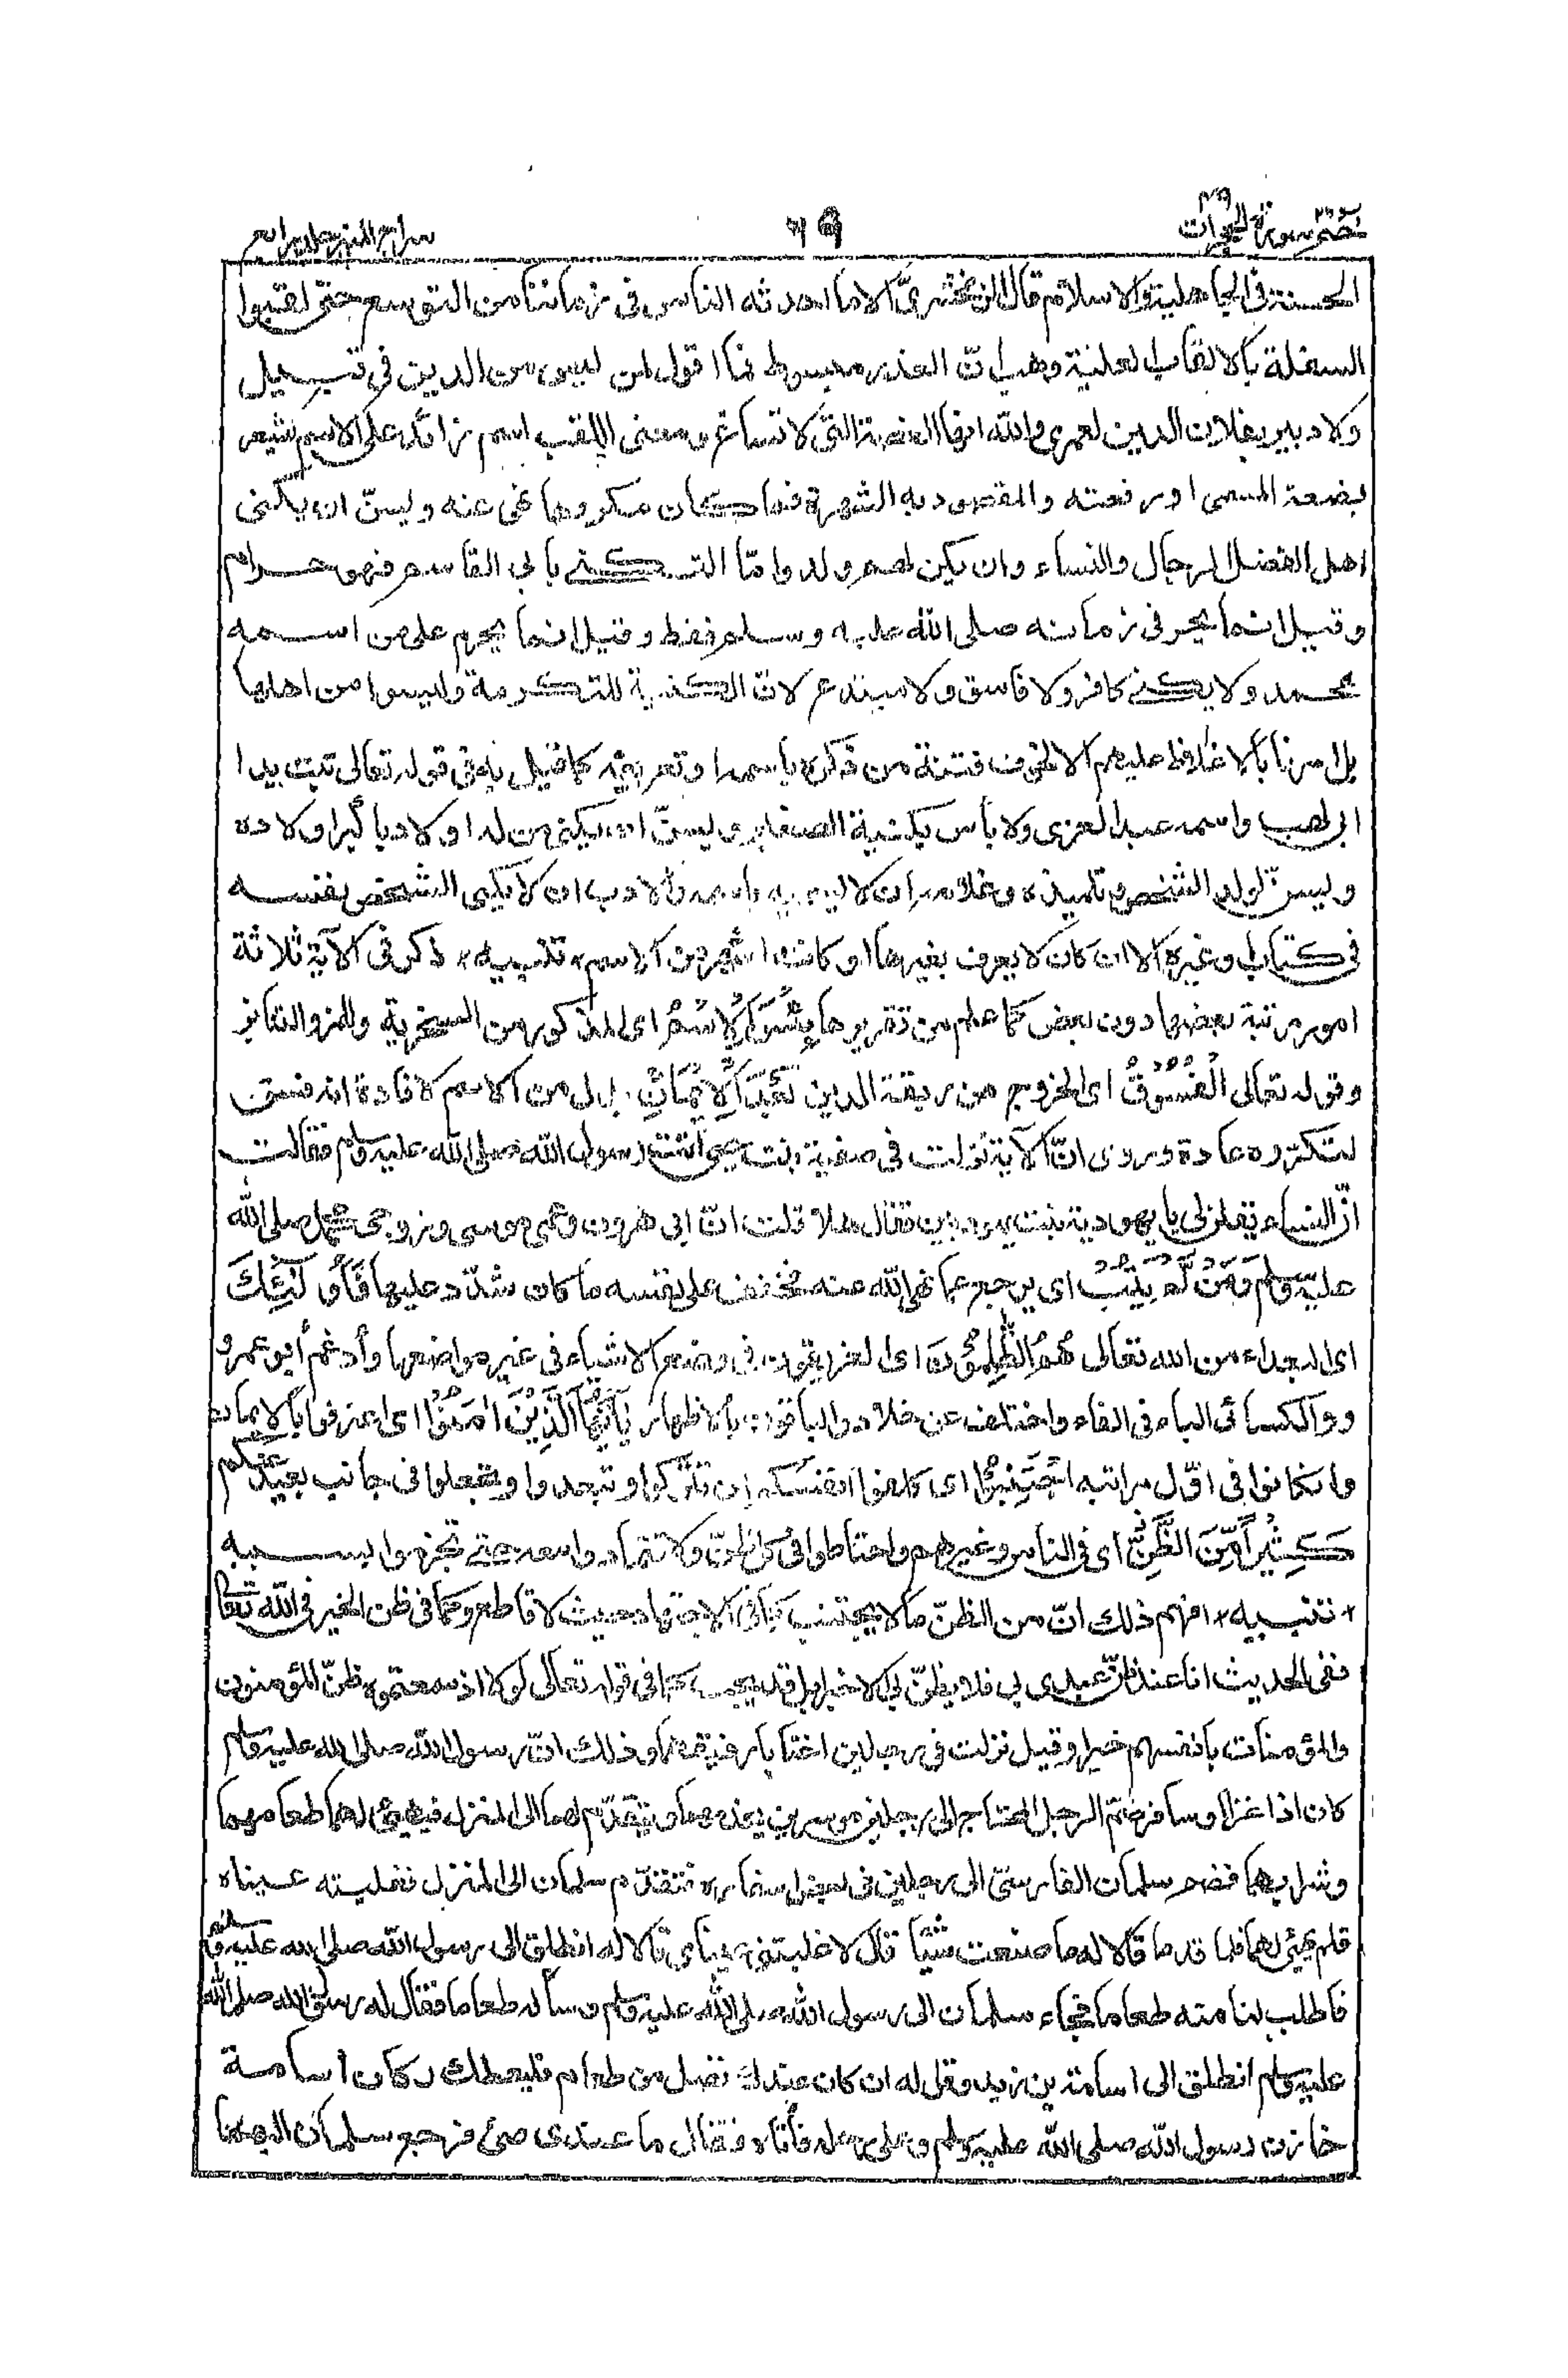 تفسير سورة الحجرات ٤٩
٦٩
سراج المنير جلد رابع
الحسنة فى الجاهلية والاسلام قال الزمخشرىّ الا ما احدثه الناس فى زماننا من التوسع حتى لقبوا
السفلة بالالقاب العلية وهب انّ العذر مبسوط فما اقول لمن ليس من الدين فى قبيل
ولا دبير بفلان الدين لعمرى والله انها الغصة التى لا تساغ ومعنى اللقب اسم زائد على الاسم يشعر
بضعة المسمى او رفعته والمقصود به الشهرة فما كان مكروها نهى عنه ويسنّ ان يكنى
اهل الفضل الرجال والنساء وان يكن لهم ولد وامّا التكنى بابى القاسم فهو حرام
وقيل انما يحرم فى زمانه صلى الله عليه وسلم فقط وقيل انما يحرم على من اسمه
محمد ولا يكنى كافر ولا فاسق ولا مبتدع لانّ الكنية للتكرمة وليسوا من اهلها
بل امرنا بالاغلاظ عليهم الا لخوف فتنة من ذكره باسمه او تعريفه كما قيل به فى قوله تعالى تبت يدا
ابى لهب واسمه عبد العزى ولا بأس بكنية الصغار ويسنّ ان يكنى من له اولاد باكبر اولاده
ويسنّ لولد الشخص وتلميذه وغلامه ان لا يسميه باسمه والادب ان لا يكنى الشخص نفسه
فى كتاب وغيره الا ان كان لا يعرف بغيرها او كانت اشهر من الاسم * تنبيه * ذكر فى الآية ثلاثة
امور مرتبة بعضها دون بعض كما علم من تقريرها بِئْسَ الِاسْمُ اى المذكور من السخرية واللمز والتنابز
وقوله تعالى الْفُسُوْقُ اى الخروج من ربقة الدين بَعْدَ الْاِيْمَانِ بدل من الاسم لافادة انه فسق
لتكرّره عادة وروى انّ الآية نزلت فى صفية بنت حيى اتت رسول الله صلى الله عليه وسلم فقالت
انّ النساء يقلن لى يا يهودية بنت يهوديين فقال هلا قلت انّ ابى هرون وعمى موسى وزوجى محمد صلى الله
عليه وسلم وَمَنْ لَّمْ يَتُبْ اى يرجع عما نهى الله عنه فخفف على نفسه ما كان شدّد عليها فَاُولٰٓئِكَ
اى البعداء من الله تعالى هُمُ الظّٰلِمُوْنَ اى العريقون فى وضع الاشياء فى غير مواضعها وأدغم أبو عمرو
والكسائى الباء فى الفاء واختلف عن خلاد والباقون بالاظهار يٰٓاَيُّهَا الَّذِيْنَ اٰمَنُوْا اى اعترفوا بالايمان
وان كانوا فى اوّل مراتبه اجْتَنِبُوْا اى كلفوا انفسكم ان تتركوا وتبعدوا وتجعلوا فى جانب بعيد عنكم
كَثِيْرًا مِّنَ الظَّنِّ اى فى الناس وغيرهم واحتاطوا فى كل ظنّ ولا تتمادوا معه حتى تجزموا بسببه
* تنبيه * افهم ذلك انّ من الظنّ ما لا يجتنب كما فى الاجتهاد حيث لا قاطع وكما فى ظن الخير فى الله تعالى
ففى الحديث انا عند ظنّ عبدى بى فلا يظنّ بى الا خيرا بل قد يجب كما فى قوله تعالى لولا اذ سمعتموه ظنّ المؤمنون
والمؤمنات بانفسهم خيرا وقيل نزلت فى رجلين اغتابا رفيقهما وذلك انّ رسول الله صلى الله عليه وسلم
كان اذا غزا او سافر ضمّ الرجل المحتاج الى رجلين موسرين يخدمهما ويتقدّم لهما الى المنزل فيهيئ لهما طعامهما
وشرابهما فضم سلمان الفارسىّ الى رجلين فى بعض اسفاره فتقدّم سلمان الى المنزل فغلبته عيناه
فلم يهيئ لهما فلما قدما قالا له ما صنعت شيّا قال لا غلبتنى عيناى قالا له انطلق الى رسول الله صلى الله عليه وسلم
فاطلب لنا منه طعاما فجاء سلمان الى رسول الله صلى الله عليه وسلم وسأله طعاما فقال له رسول الله صلى الله
عليه وسلم انطلق الى اسامة بن زيد وقل له ان كان عندك فضل من طعام فليعطك وكان أسامة
خازن رسول الله صلى الله عليه وسلم وعلى رحله فأتاه فقال ما عندى شئ فرجع سلمان اليهما